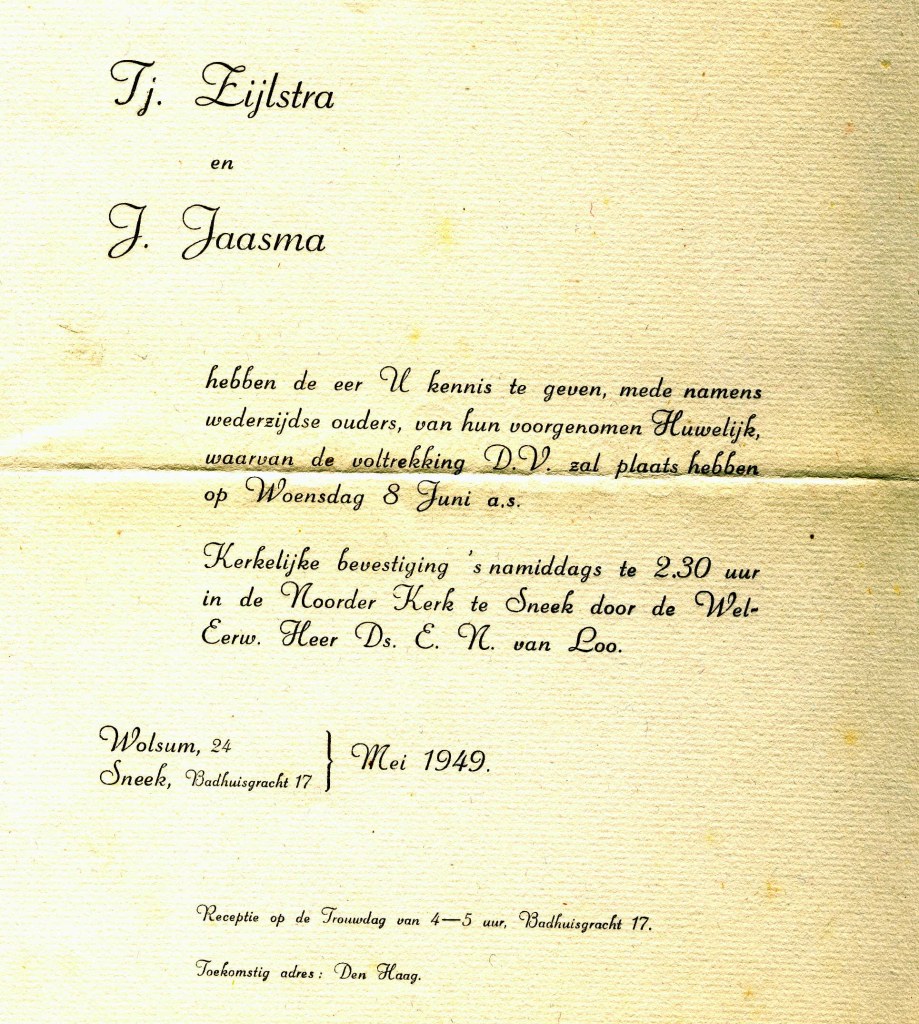 Tj. Zijlstra
en
J. Jaasma
hebben de eer U kennis te geven, mede namens
wederzijdse ouders, van hun voorgenomen Huwelijk,
waarvan de voltrekking D.V. zal plaats hebben
op Woensdag 8 Juni a.s.
Kerkelijke bevestiging 's namiddags te 2.30 uur
in de Noorder Kerk te Sneek door de Wel-
Eerw. Heer Ds. E. N. van Loo.
Wolsum, 24
Sneek, Badhuisgracht 17 } Mei 1949.
Receptie op de Trouwdag van 4—5 uur, Badhuisgracht 17.
Toekomstig adres: Den Haag.